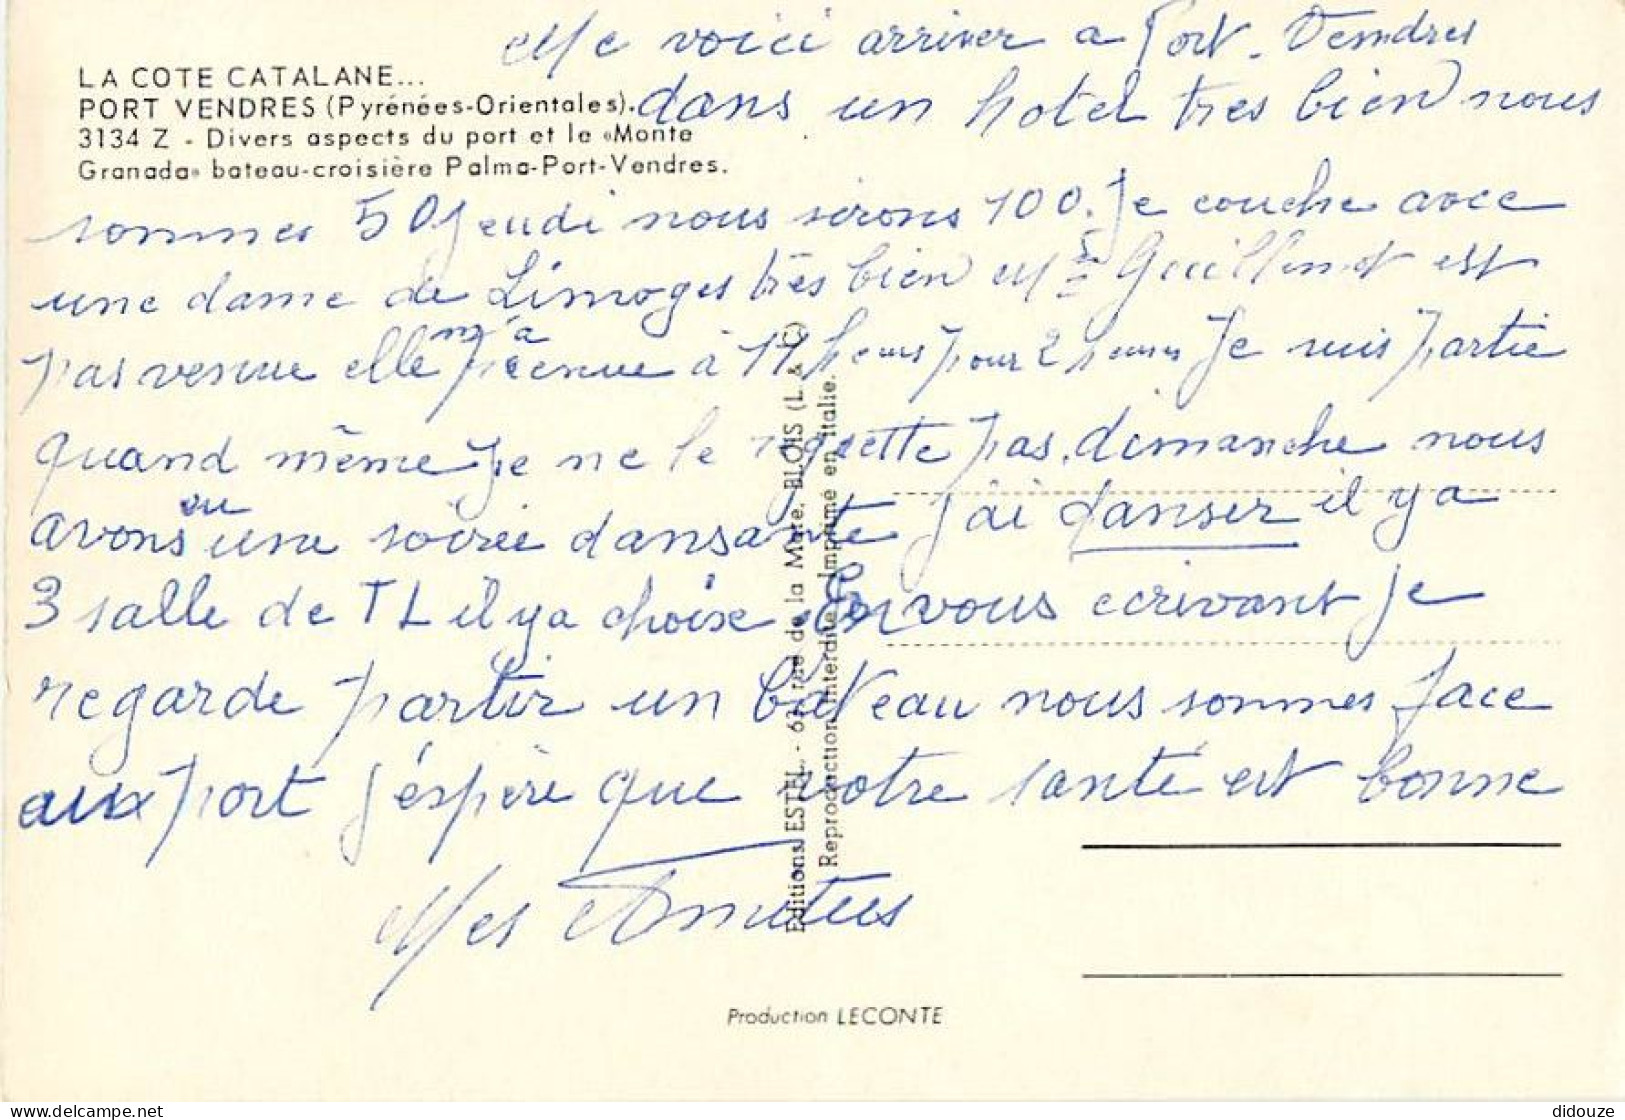 Me voici arriver a Port. Vendres
LA COTE CATALANE...
PORT VENDRES (Pyrénées-Orientales).
3134 Z - Divers aspects du port et le «Monte
Granada» bateau-croisière Palma-Port-Vendres.
dans un hotel tres bien nous
sommes 50 jeudi nous serons 100. Je couche avec
une dame de Limoges très bien est
pas venue elle m'a prevenue à 11 heurs pour 2 heures Je suis partie
quand même Je ne le regrette pas. dimanche nous
avons eu une soirée dansante j'ai danser il y a
3 salle de TL il y a choix En vous ecrivant je
regarde partir un bateau nous sommes face
aux port j'éspère que votre santé est bonne
Mes Amitiés
Editions ESTEL - 63, rue de la Mare, BLOIS (L. & C)
Reproduction interdite. Imprimé en Italie.
Production LECONTE
didouze
www.delcampe.net